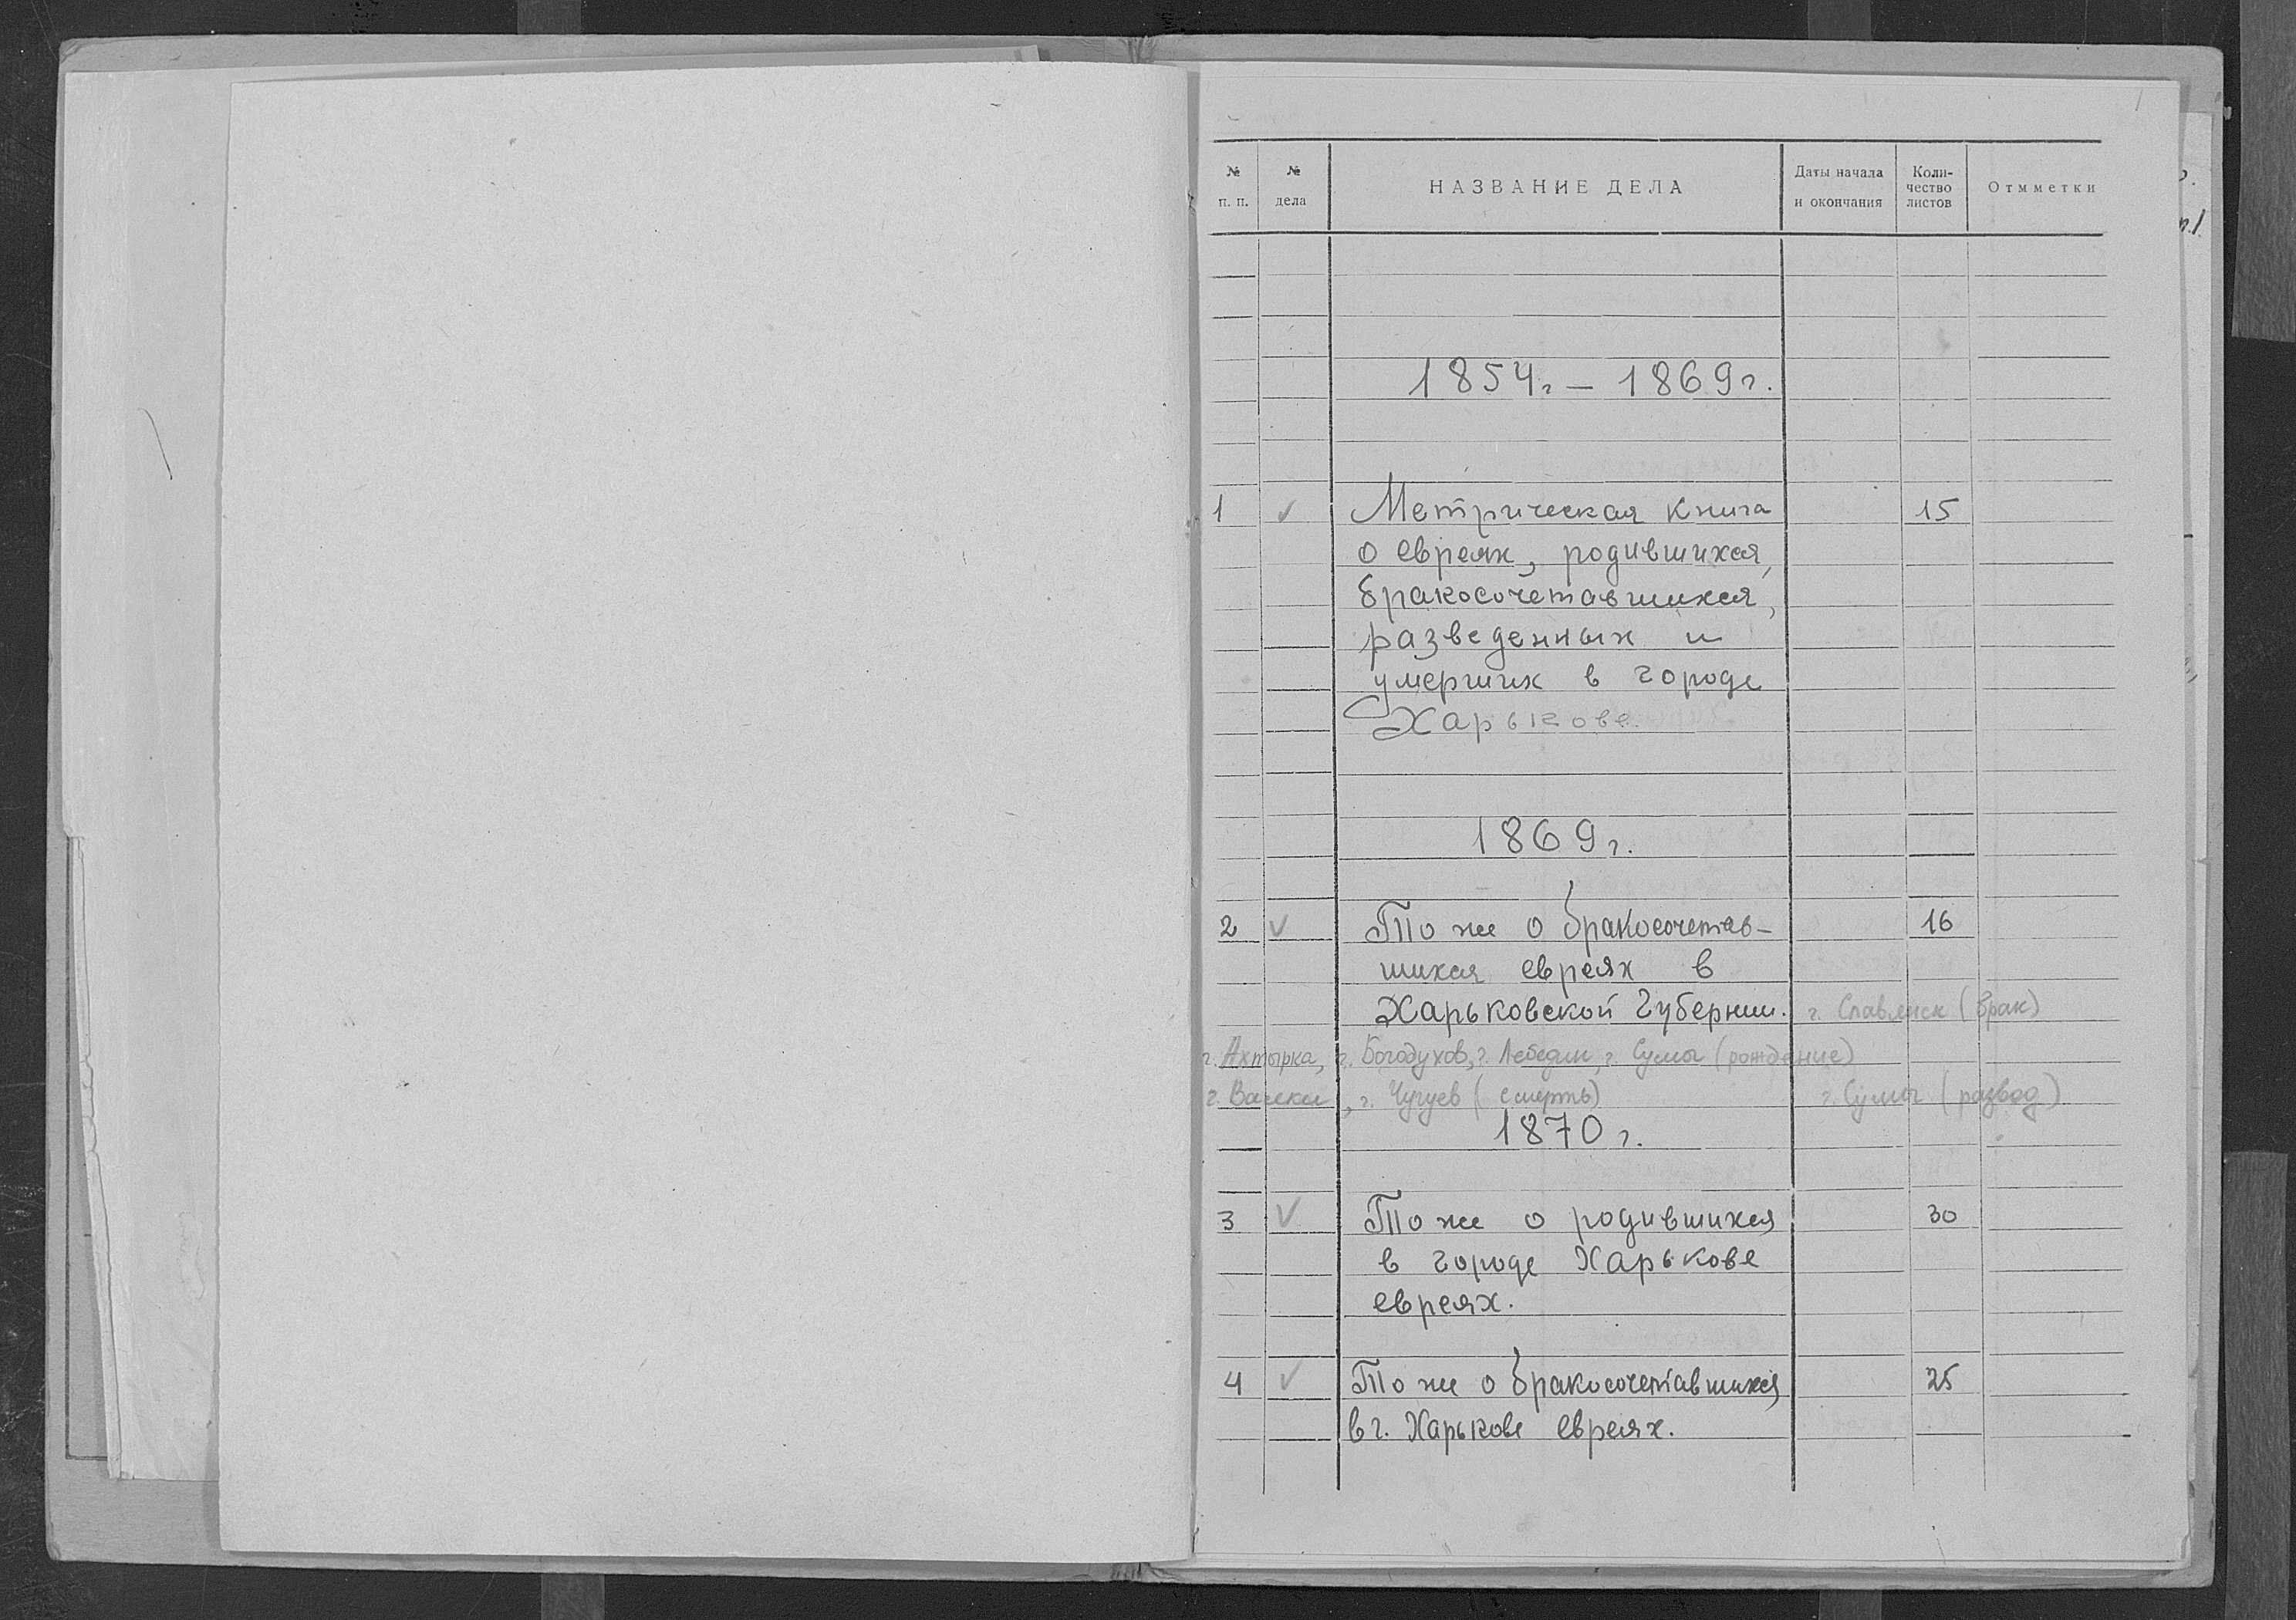 1
№ п. п. № дела НАЗВАНИЕ ДЕЛА Даты начала и окончания Коли-чество листов Отмметки
1854г. – 1869г.
1 ✓ Метрическая книга 15
о евреях, родившихся,
бракосочетавшихся,
разведенных и
умерших в городе
Харькове.
1869г.
2 ✓ То же о бракосочетав- 16
шихся евреях в
Харьковской Губернии. г. Славянск (брак)
г. Ахтырка, г. Богодухов, г. Лебедин, г. Сумы (рождение)
г. Валки, г. Чугуев (смерть) г. Сумы (развод)
1870г.
3 ✓ То же о родившихся 30
в городе Харькове
евреях.
4 ✓ То же о бракосочетавшихся 25
в г. Харькове евреях.